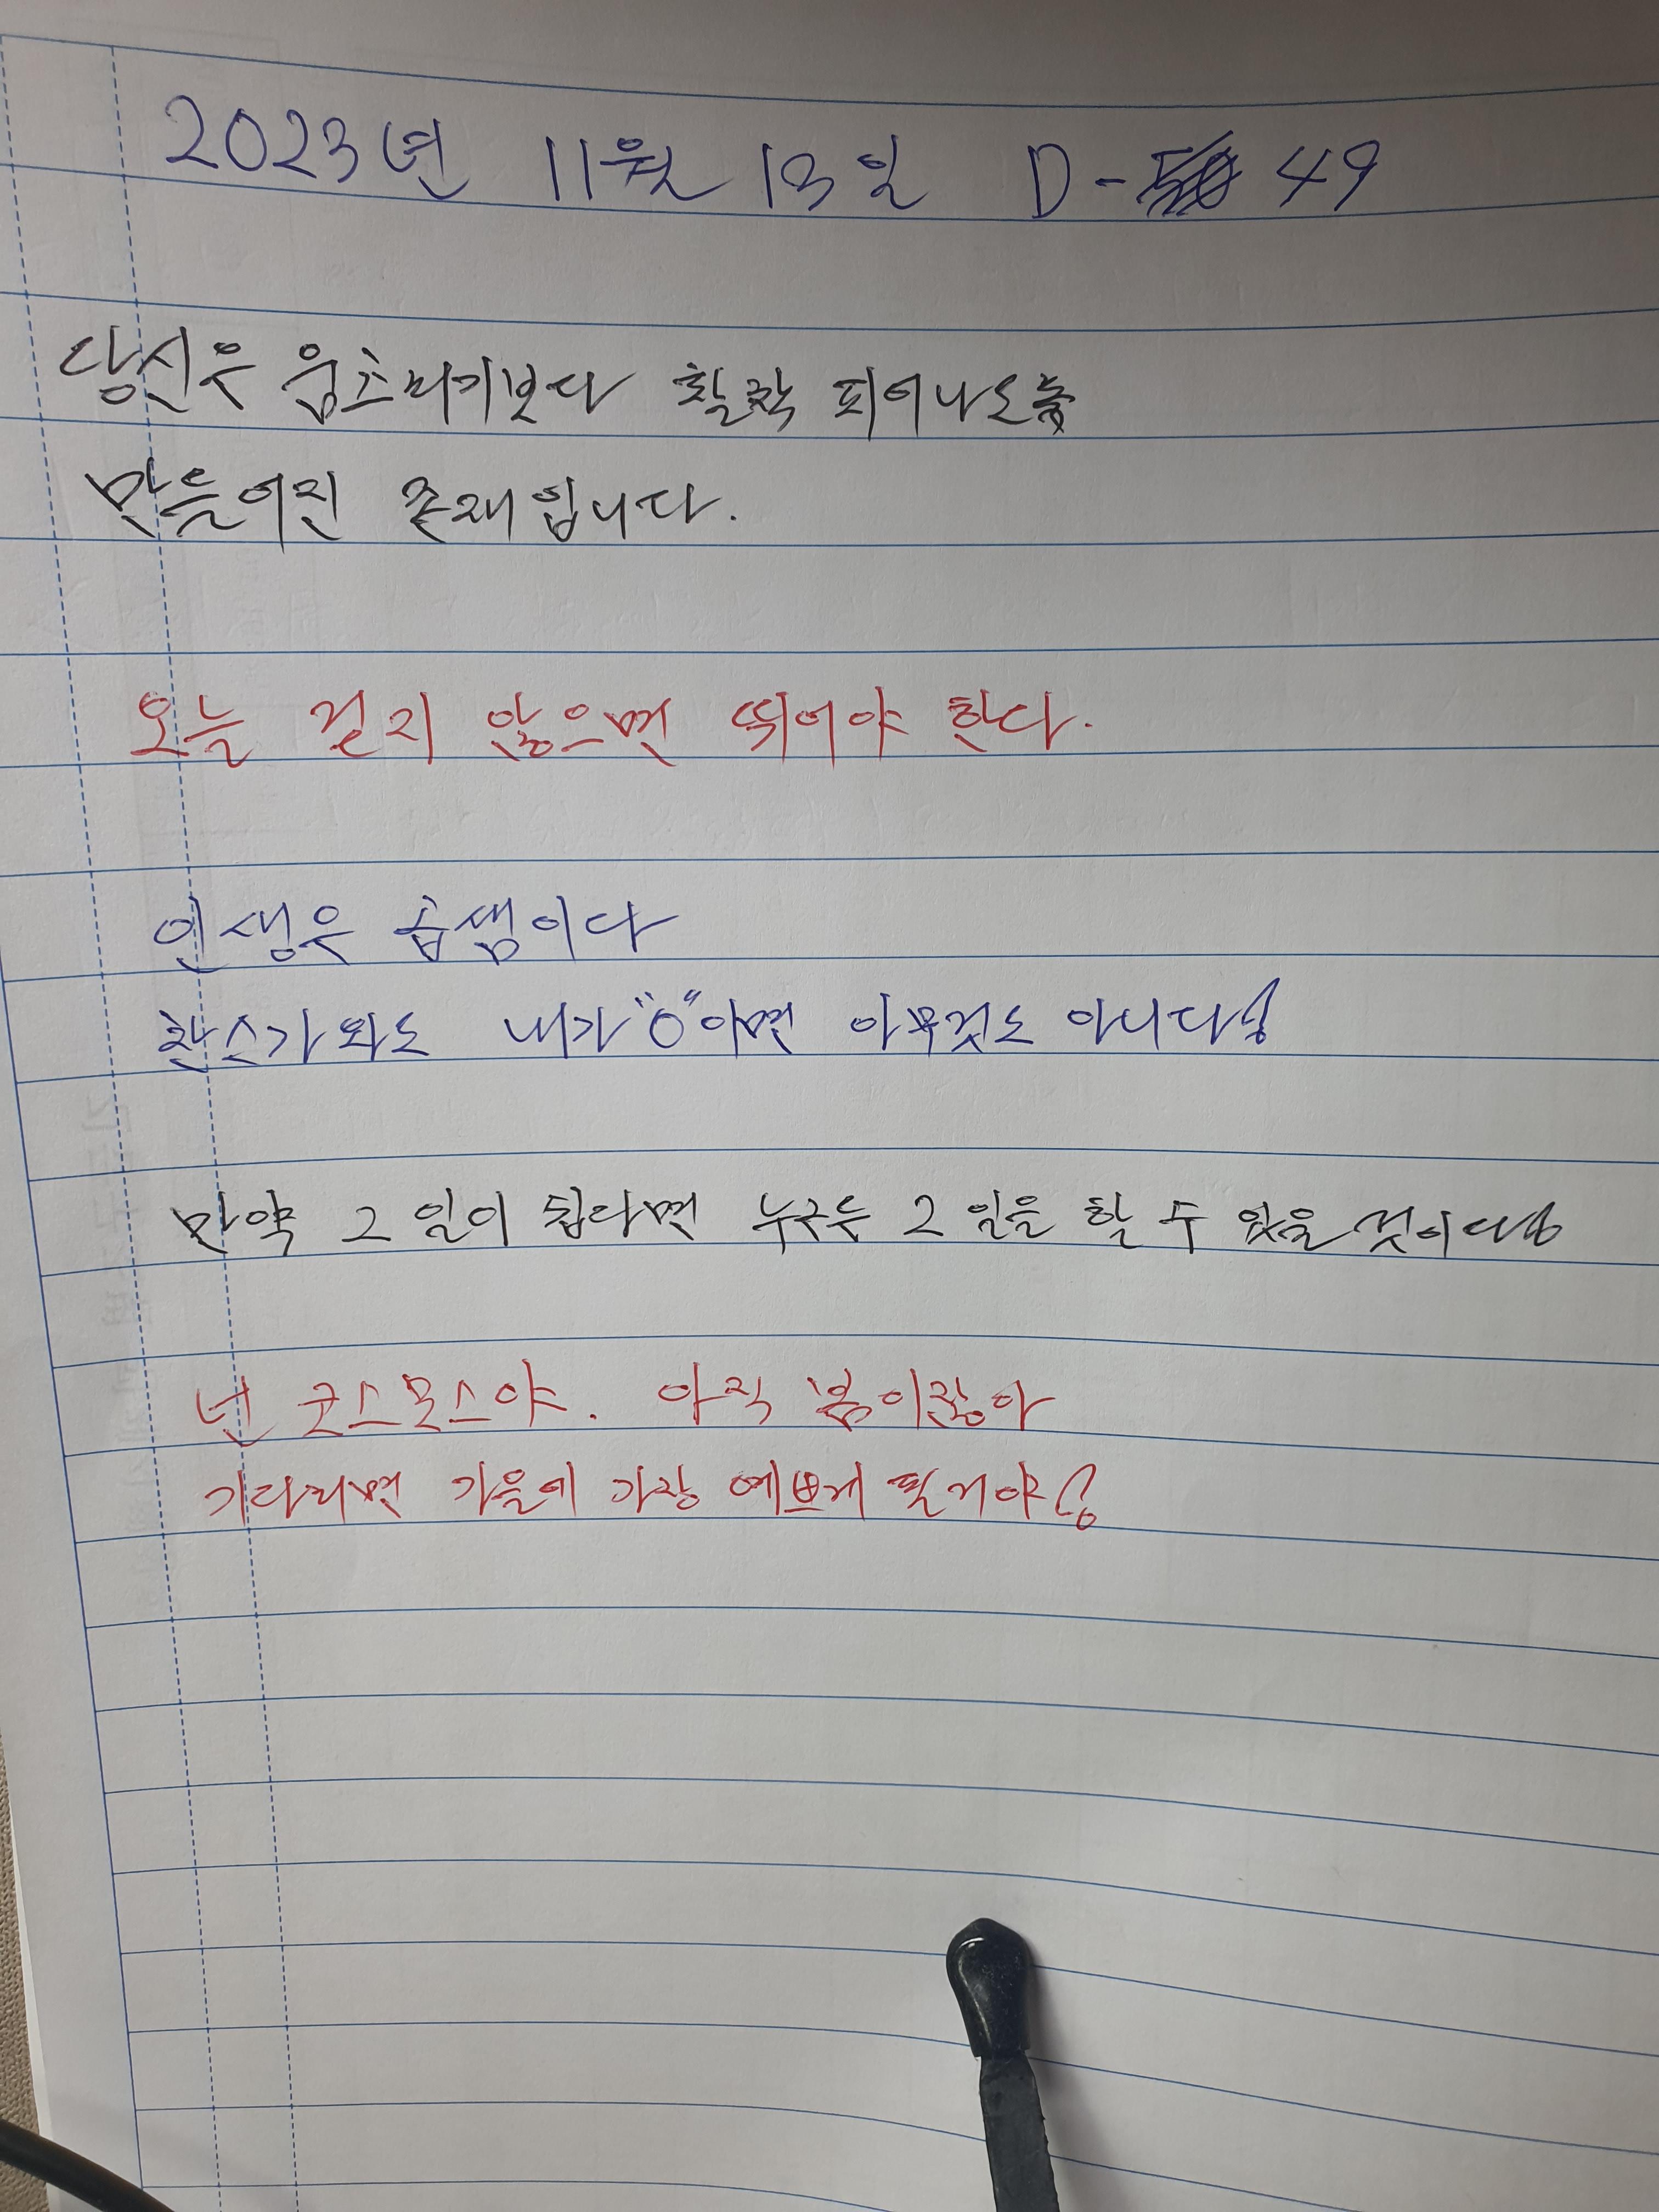 2023년 11월 13일 D-49
당신은 움츠리기보다 활짝 피어나도록
만들어진 존재입니다.
오늘 걷지 않으면 뛰어야 한다.
인생은 곱셈이다
찬스가 와도 내가 "0"이면 아무것도 아니다!
만약 그 일이 쉽다면 누구든 그 일을 할 수 있을 것이다!
넌 코스모스야. 아직 봄이잖아
기다리면 가을에 가장 예쁘게 필거야!